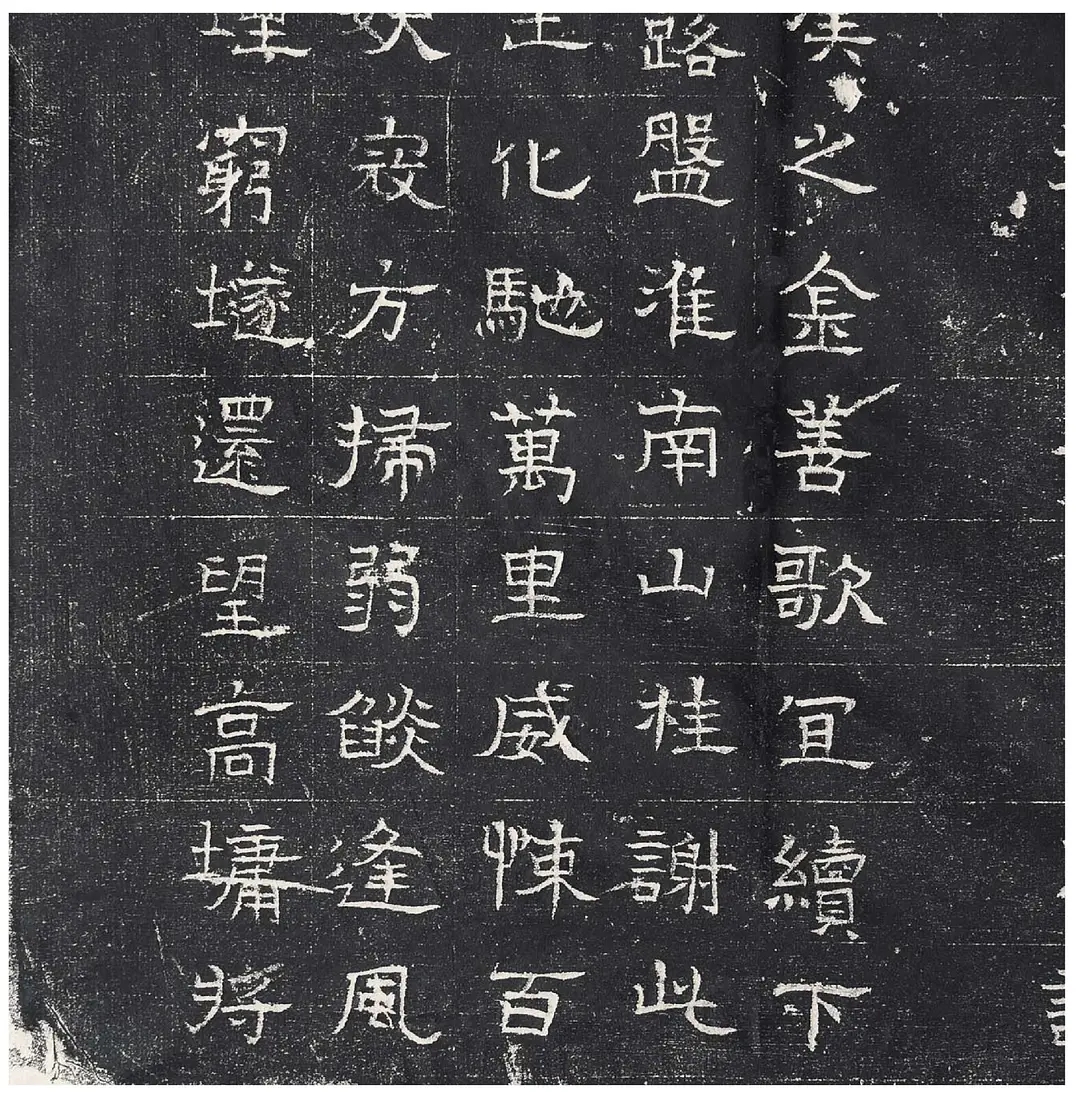 之金善歌冝續下
路盤淮南山桂謝此
化馳萬里威悚百
妖寇方掃弱燄逢風
窮還望高墉將